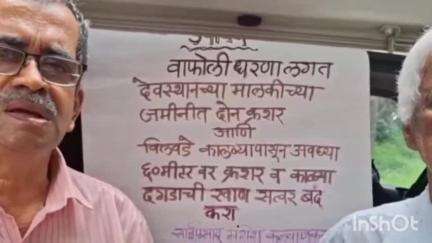 वाफोली धरणा लगत
देवस्थानच्या मालकीच्या
जमीनीत दोन क्रशर
आणि
विलवडे काळव्यापासून अवघ्या
६०मीटर वर क्रशर व काळ्या
दगडाची खाण सत्वर बंद
करा
InShOt